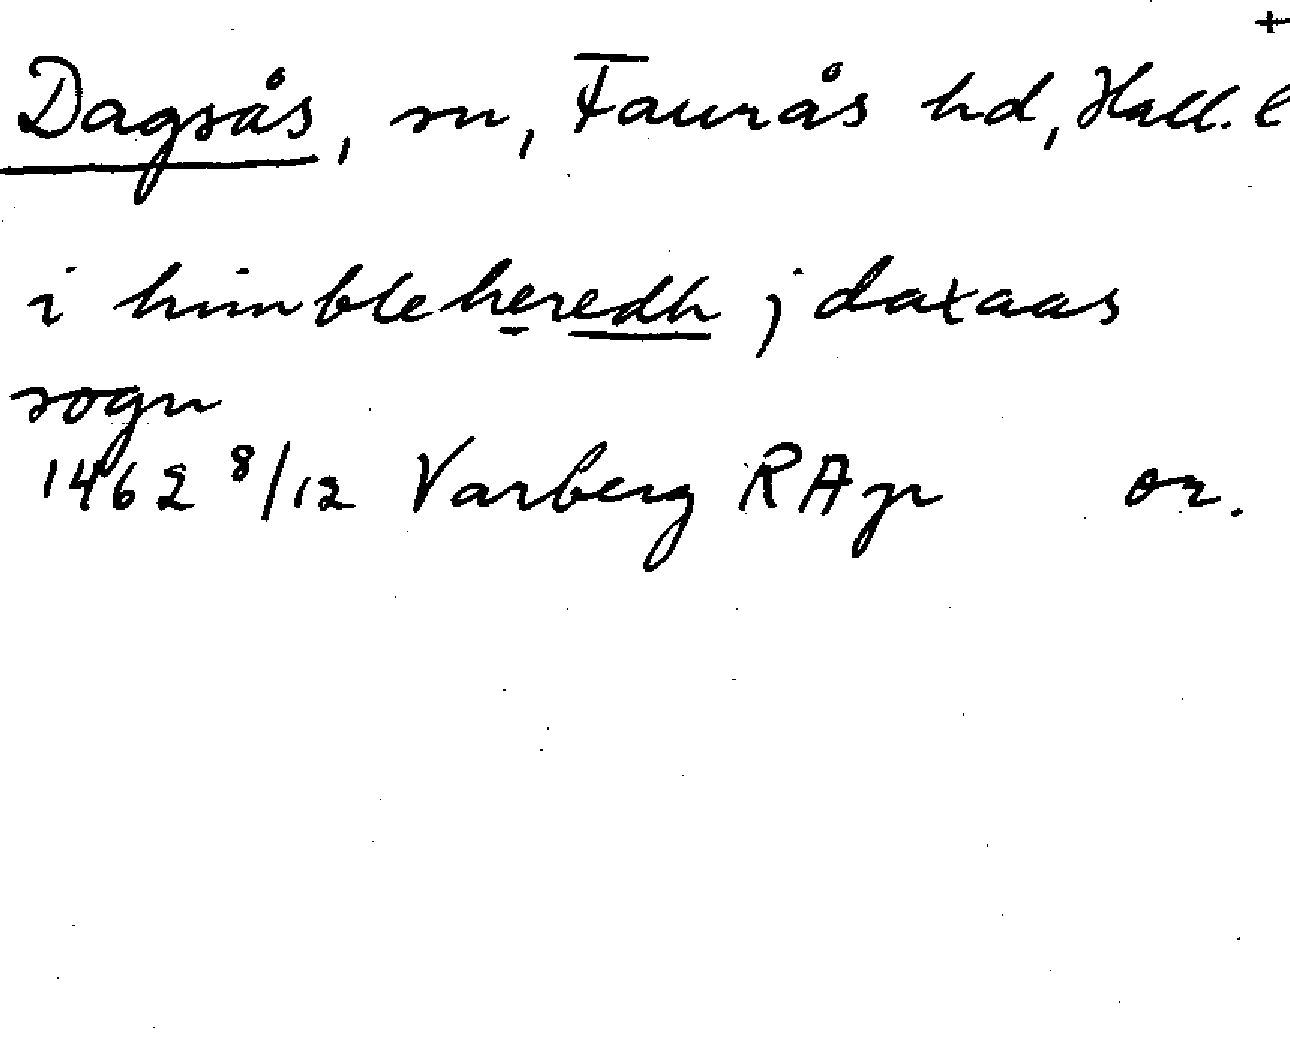 +
Dagsås, sn, Faurås hd, Hall. l
i himbleheredh j daxaas
sogn
1462 8/12 Varberg RAp or.